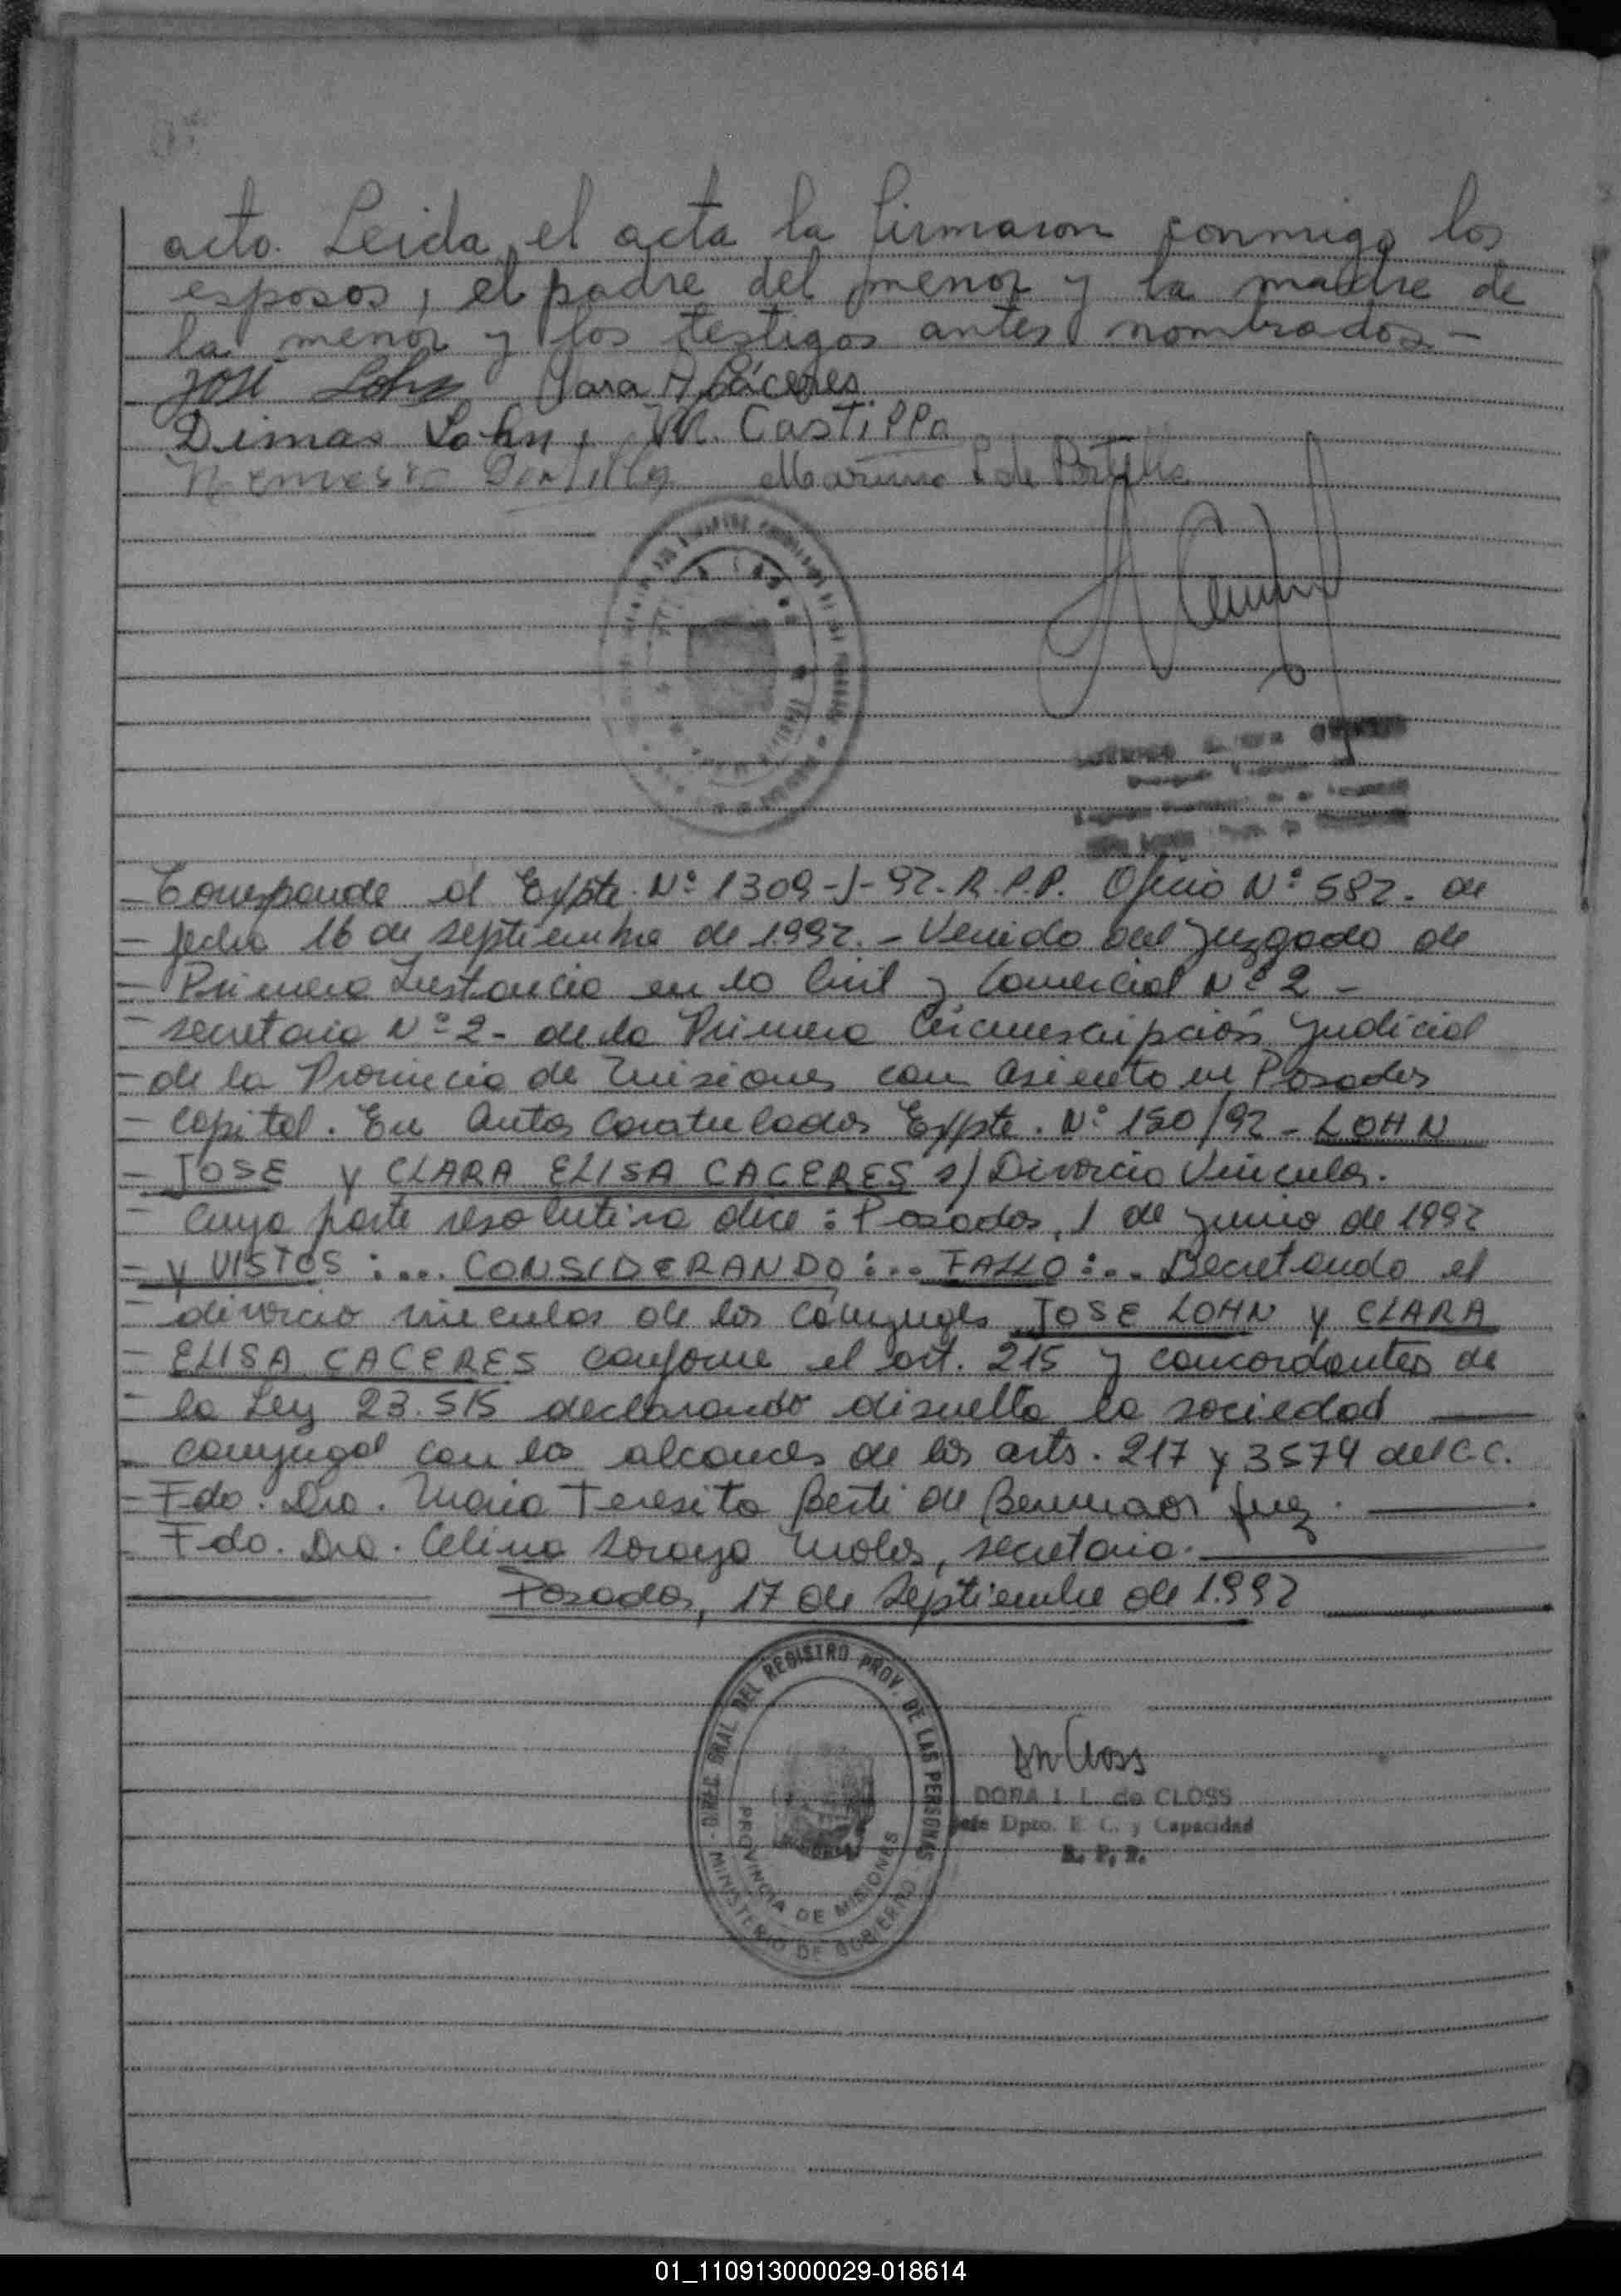 acto. Leida el acta la firmaron conmigo los
esposos, el padre del menor y la madre de
la menor y los testigos antes nombrados -
José Lohn Clara Cáceres
Dimas Lohn, M. Castillo
Portilla de Portillo
Corresponde al Expte. Nº 1309-J-92. R.P.P. Oficio Nº 582. de
fecha 16 de septiembre de 1.992. - Venido del Juzgado de
Primera Instancia en lo Civil y Comercial Nº 2 -
secretaria Nº 2 - de la Primera Circunscripción Judicial
- de la Provincia de Misiones con asiento en Posadas
- Capital. En Autos Caratulados Expte. Nº 150/92 - LOHN
- JOSE y CLARA ELISA CACERES s/ Divorcio Vincular.
Cuya parte resolutiva dice: Posadas, 1 de junio de 1992
- y VISTOS:... CONSIDERANDO:... FALLO:... Decretando el
divorcio vincular de los cónyuges JOSE LOHN y CLARA
ELISA CACERES conforme el art. 215 y concordantes de
la Ley 23.515 declarando disuelta la sociedad
conyugal con los alcances de los arts. 217 y 3574 del C.C.
- Fdo. Dra. Maria Teresita Berti de juez.
Fdo. Dra. Celina Soraya secretaria.
Posadas, 17 de Septiembre de 1.992
DIREC. GRAL. DEL REGISTRO PROV. DE LAS PERSONAS
PROVINCIA DE MISIONES
MINISTERIO DE GOBIERNO
DORA I. L. de CLOSS
Jefe Dpto. E. C. y Capacidad
R. P. P.
01_110913000029-018614